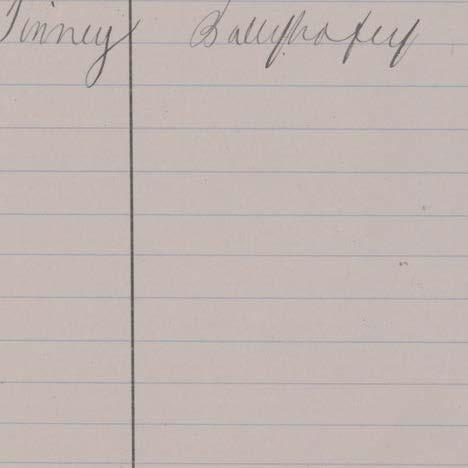 Tinney Ballyhofey